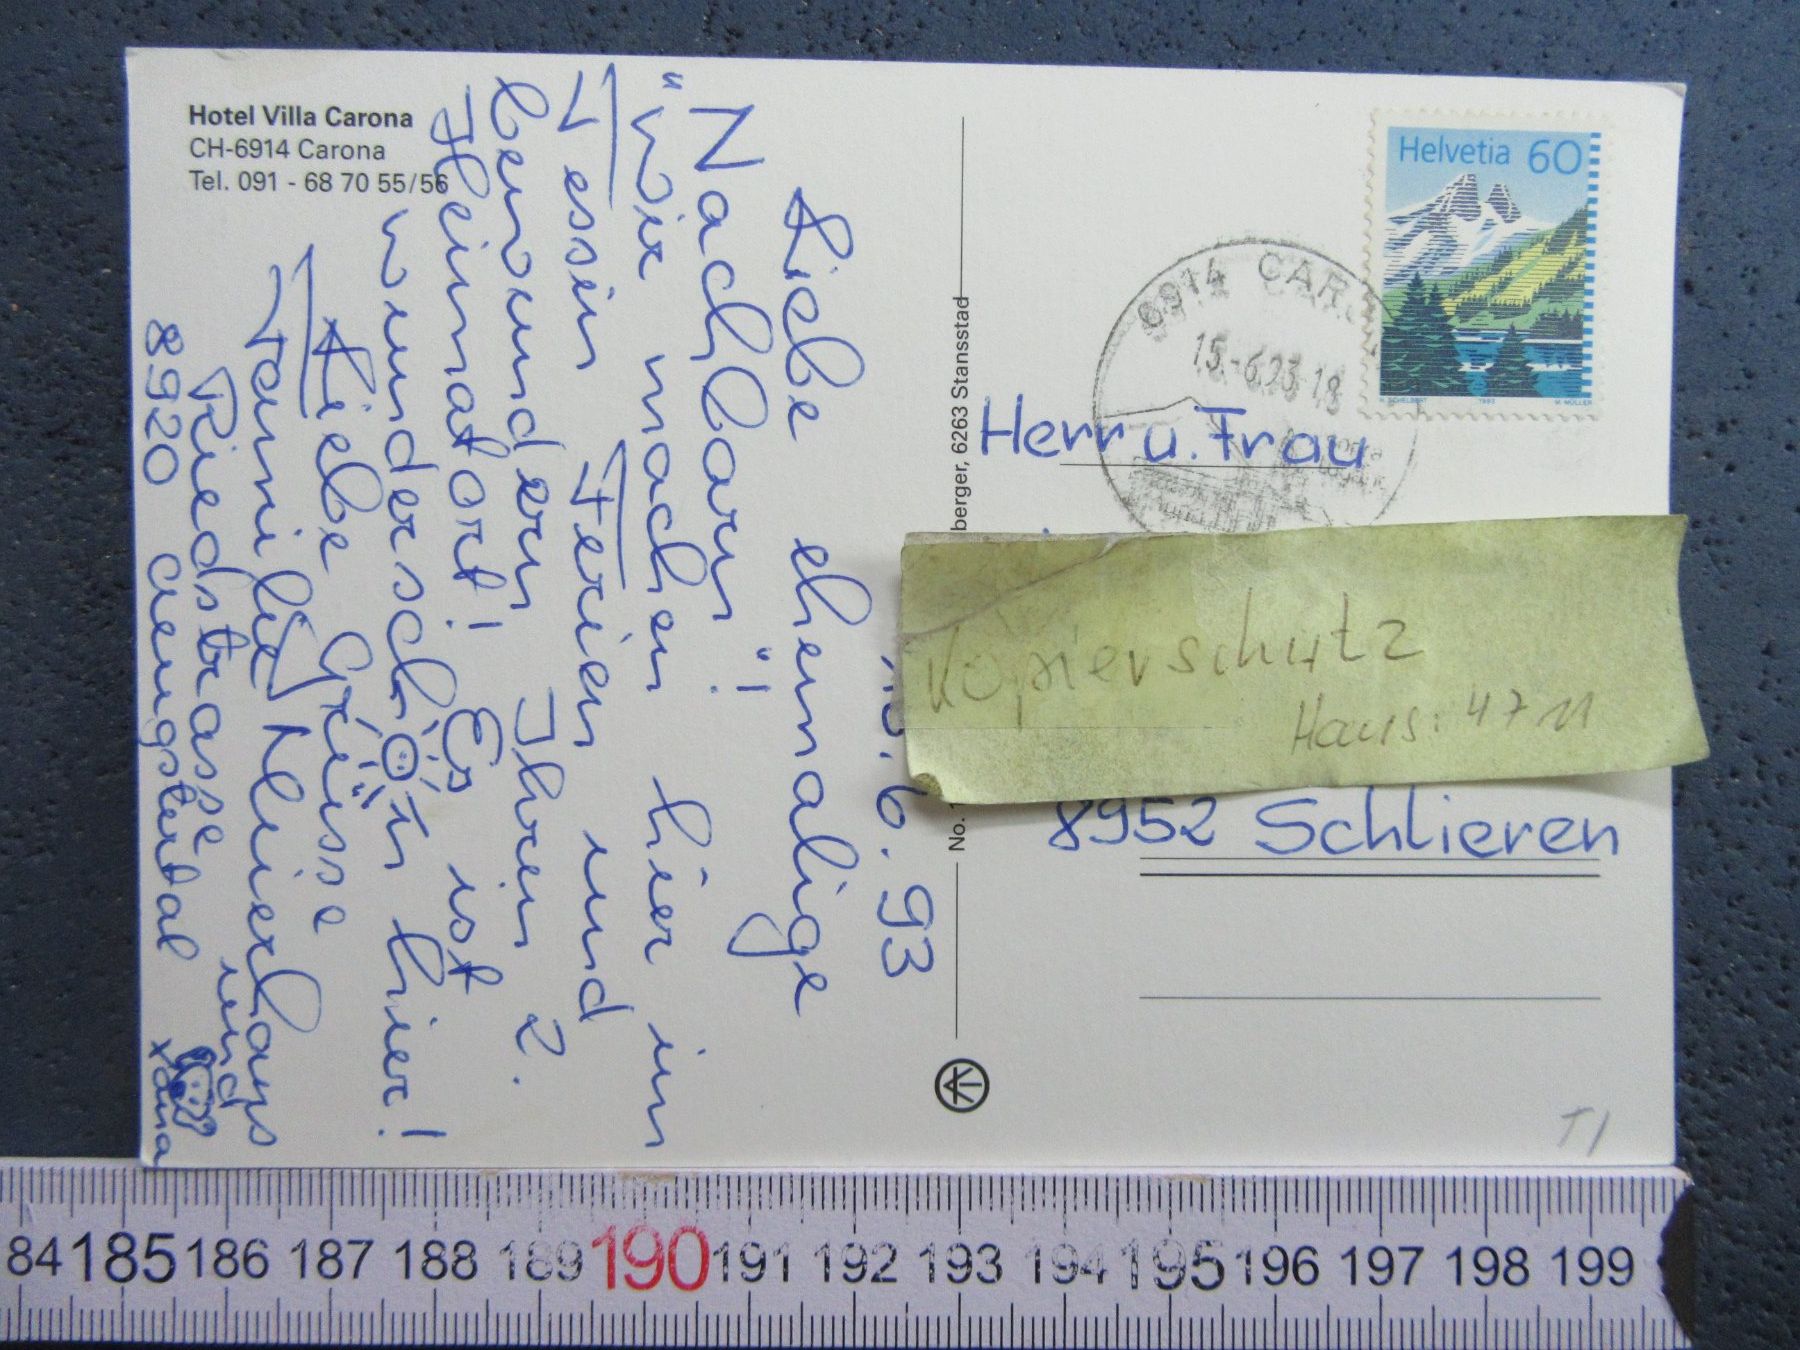 Hotel Villa Carona
CH-6914 Carona
Tel. 091 - 68 70 55/56
.6.93
Liebe ehemalige
Nachbarn"!
"Wir machen hier im
Tessin Ferien und
bewundern Ihren 2.
Heimatort! Es ist
wunderschön hier!
Liebe Grüsse
Familie und
Riedstrasse
8920 Aeugstertal
berger, 6263 Stansstad
No.
Helvetia 60
H. SCHELBERT 1993 M. MÜLLER
6914 CAR
15.-6.93-18
Herr u. Frau
Kopierschutz
Haus: 4711
8952 Schlieren
T1
84 185 186 187 188 189 190 191 192 193 194 195 196 197 198 199